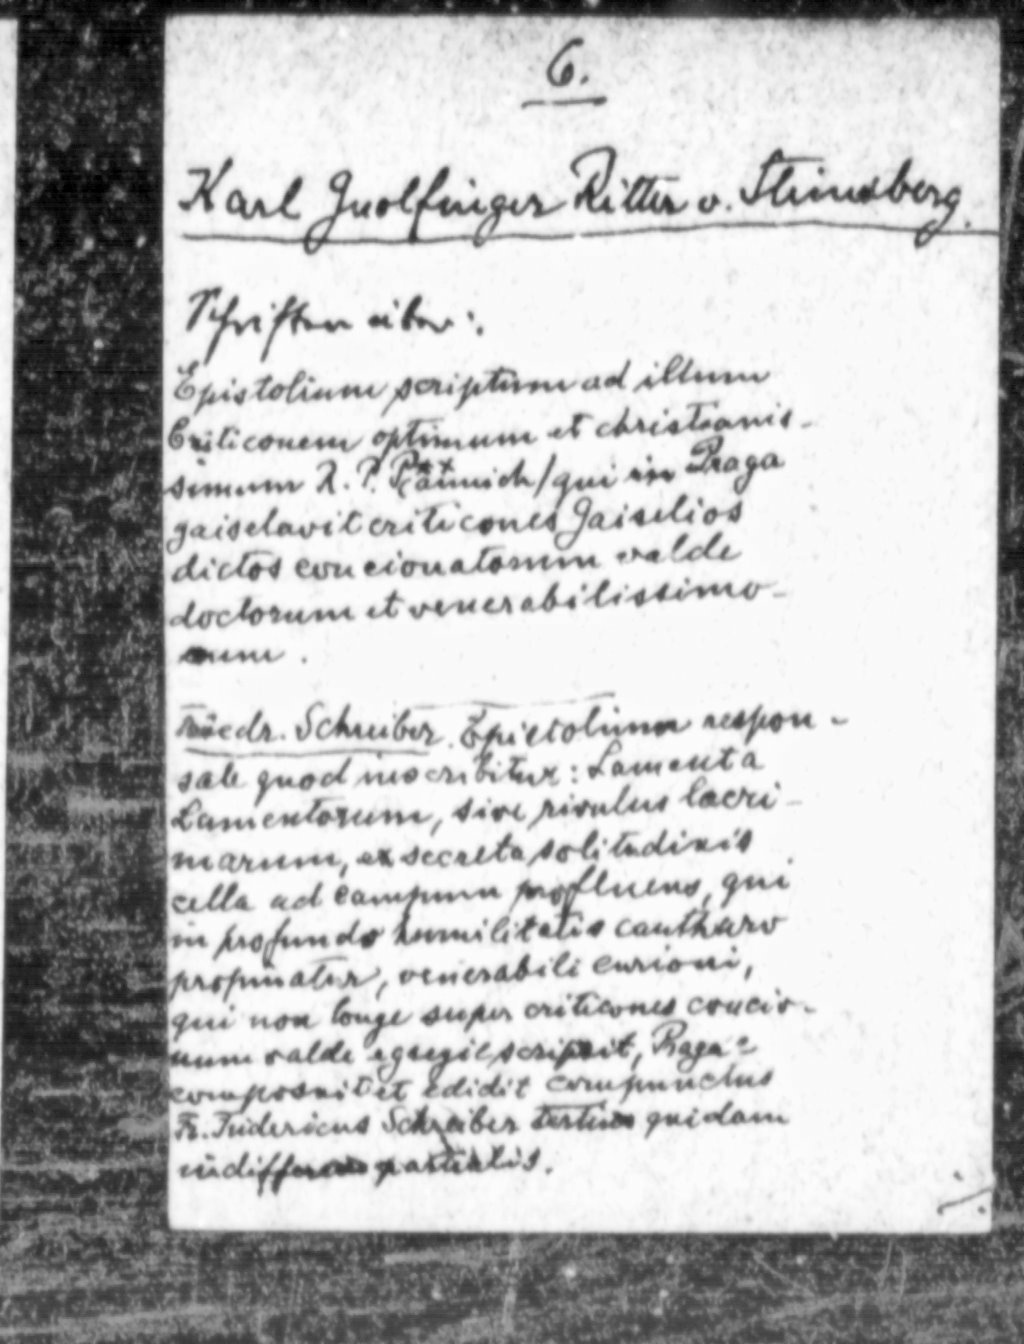 6.
Karl Guolfinger Ritter v. Steinsberg.
Schriften über:
Epistolium scriptum ad illum
Criticonem optimum et christianis-
simum R. P. / qui in Praga
gaiselavit criticones Gaiselios
dictos concionatorum valde
doctorum et venerabilissimo-
rum.
Friedr. Schreiber. Epistolium respon-
sale quod inscribitur: Lamenta
Lamentorum, sive rivulus lacri-
marum, ex secreta solitudinis
cella ad campum profluens, qui
in profundo humilitatis cantharo
propinatur, venerabili curioni,
qui non longe super criticones concio-
num valde egregie scripsit, Pragae
composuit et edidit compunctus
Fr. Fridericus Schreiber tertius quidam
indifferens partialis.